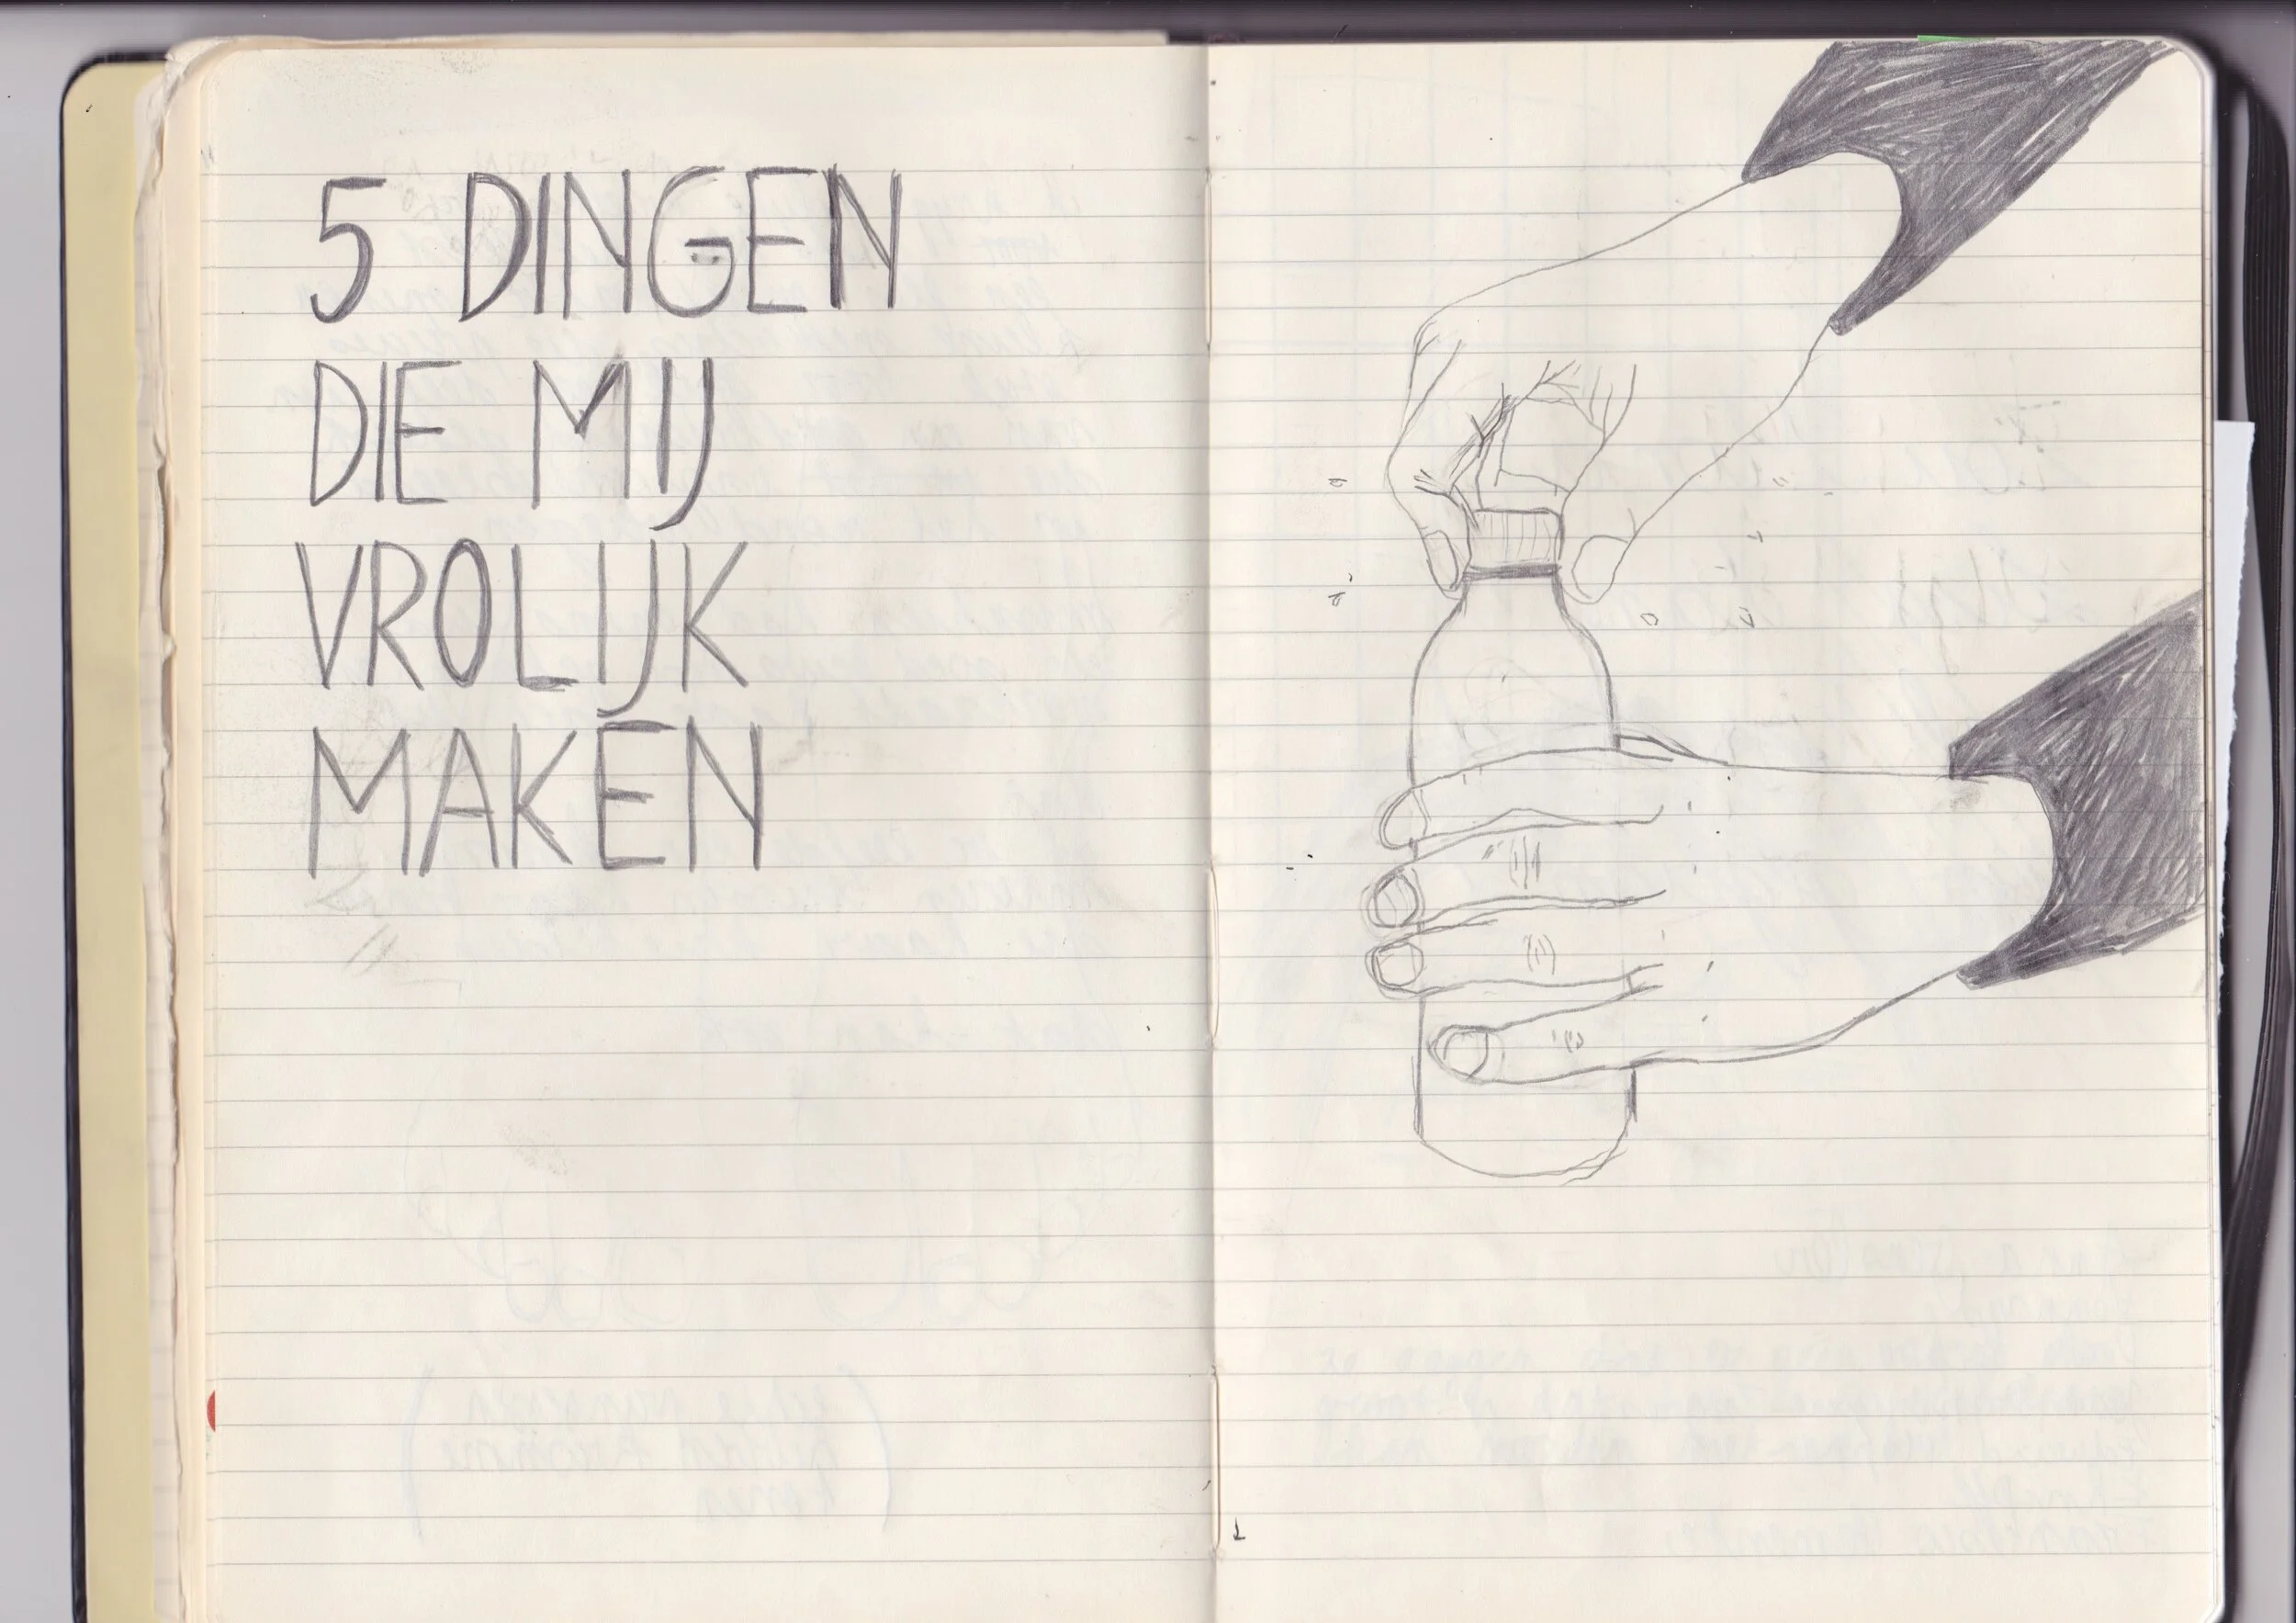 5 DINGEN
DIE MIJ
VROLIJK
MAKEN